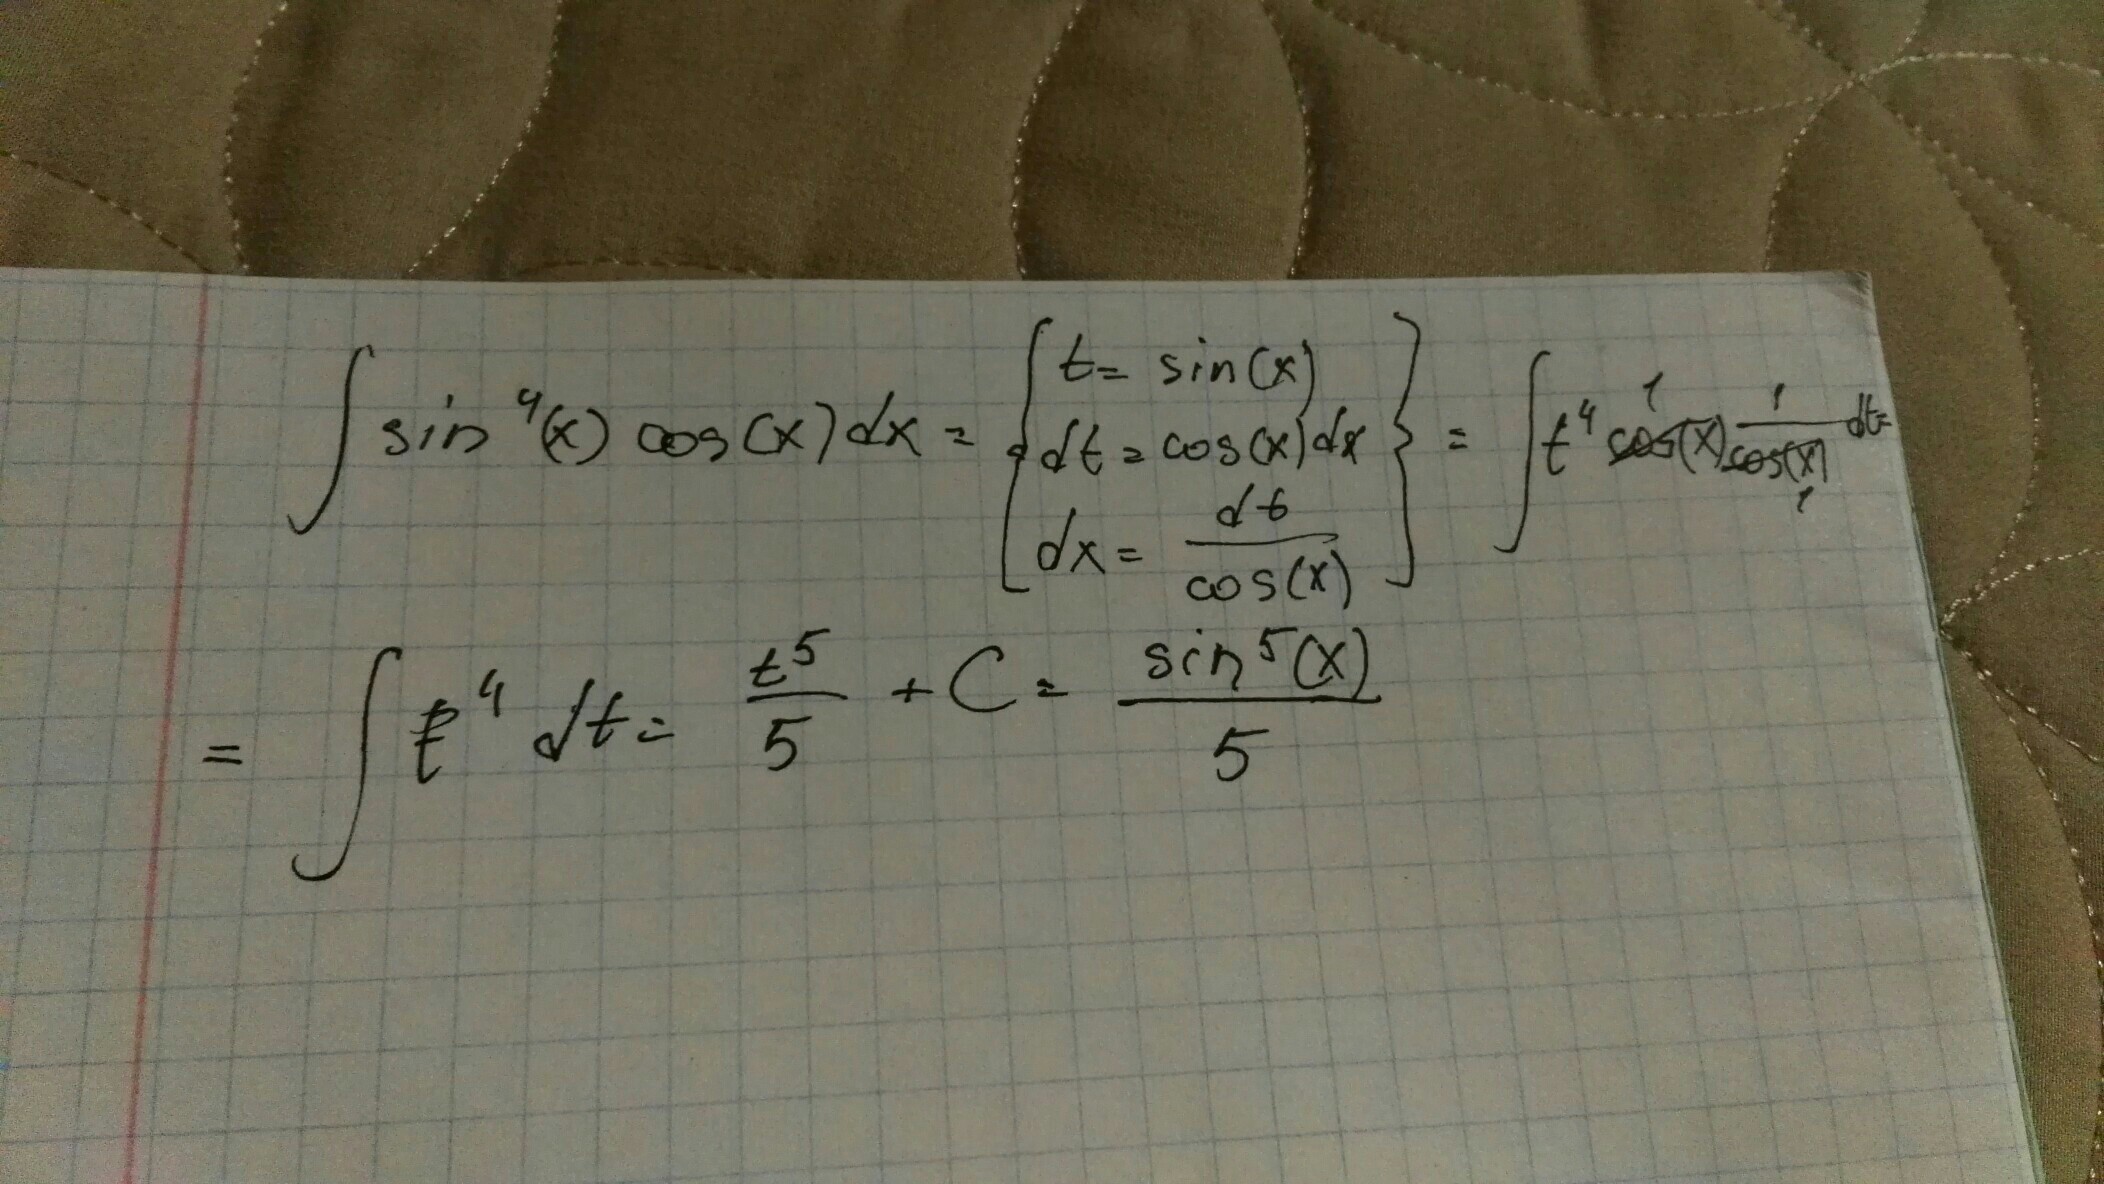 ∫ sin⁴(x) cos(x) dx = { t = sin(x) dt = cos(x) dx dx = dt / cos(x) } = ∫ t⁴ cos(x) 1 1 / cos(x) 1 dt =
= ∫ t⁴ dt = t⁵ / 5 + C = sin⁵(x) / 5